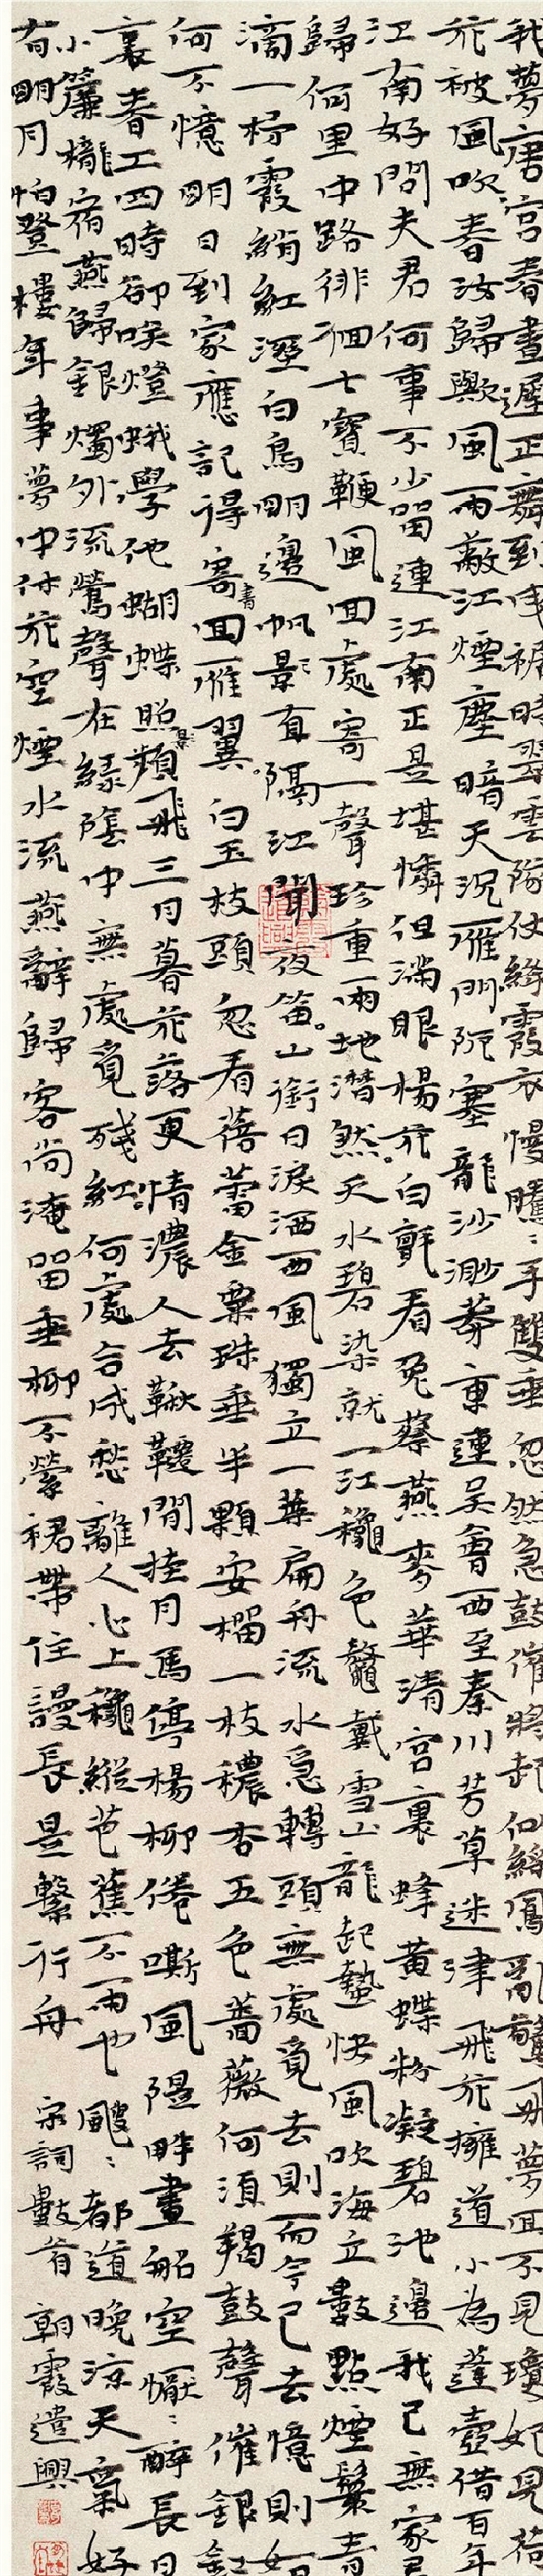 我夢唐宮春晝遲正舞到曳裾時翠雲隊仗絳霞衣慢騰〻手雙垂忽然急鼓催將起似綵鳳亂驚飛夢回不見瓊妃見荷
花被風吹春汝歸歟風雨蔽江煙塵暗天況雁門阨塞龍沙渺莽東連吳會西至秦川芳草迷津飛花擁道小為蓬壺借百年
江南好問夫君何事不少留連江南正是堪憐但滿眼楊花白氈看兔葵燕麥華清宮裏蜂黃蝶粉凝碧池邊我已無家君
歸何里中路徘徊七寶鞭風回處寄一聲珍重兩地潸然天水碧染就一江穐色鼇戴雪山龍起蟄快風吹海立數點煙鬟青
滴一杼霞綃紅溼白鳥明邊帆影直隔江聞夜笛山銜日淚洒西風獨立一葉扁舟流水急轉頭無處覓去則而今已去憶則如
何不憶明日到家應記得寄書回雁翼白玉枝頭忽看蓓蕾金粟珠垂半顆安榴一枝穠杏五色薔薇何須羯鼓聲催銀釭
裏春工四時卻笑燈蛾學他蝴蝶照影頻飛三月暮花落更情濃人去鞦韆閒挂月馬停楊柳倦嘶風隄畔畫船空懨〻醉長日
小簾櫳宿燕歸銀燭外流鶯聲在綠陰中無處覓殘紅何處合成愁離人心上穐縱芭蕉不雨也颼〻都道晚涼天氣好
有明月怕登樓年事夢中休花空煙水流燕辭歸客尚淹留垂柳不縈裙帶住謾長是繫行舟 宋詞數首 朝霞遣興